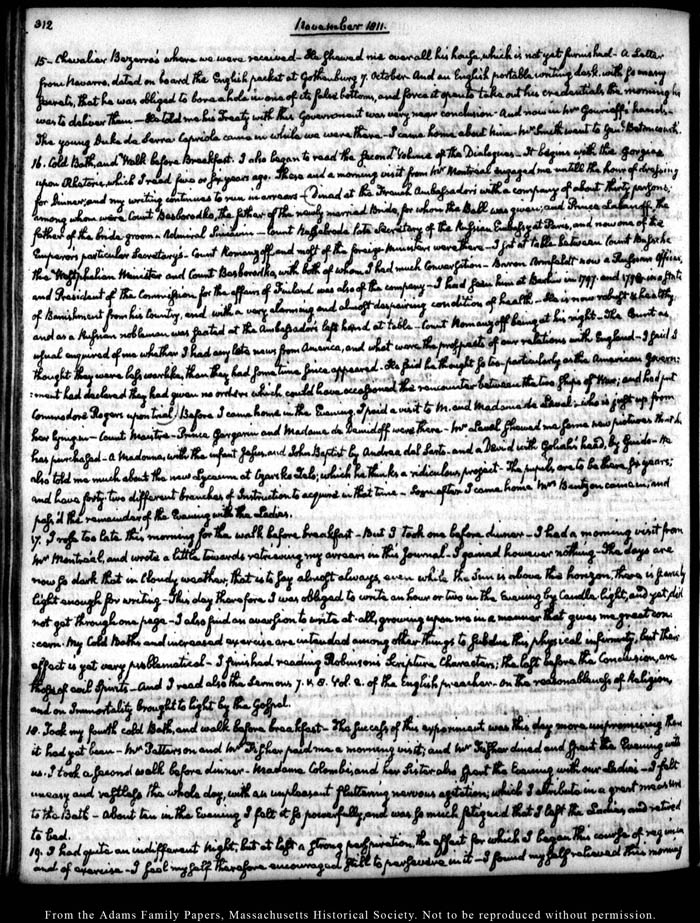 312
November 1811.
15 – Chevalier Bezarra's where we were received – He shewed me over all his house, which is not yet furnished – A Letter
from Navarro, dated on board the English packet at Gothenburg 7. October. And an English portable writing desk, with so many
secrets, that he was obliged to bore a hole in one of its false bottoms, and force it open to take out his credentials the morning he
was to deliver them – He told me his Treaty with this Government was very near conclusion – And now in Mr Gourieff's hands –
The young Duke de Serra Capriola came in while we were there – I came home about nine. Mr Smith went to Genl Betancourt's.
16. Cold Bath, and Walk before Breakfast. I also began to read the second Volume of the Dialogues – It begins with the Gorgias
upon Rhetoric, which I read five or six years ago. These and a morning visit from Mr Montréal engaged me untill the hour of dressing
for dinner; and my writing continues to run in arrears – Dined at the French Ambassador's with a company of about thirty persons;
among whom were Count Besborodko, the father of the newly married Bride, for whom the Ball was given; and Prince Labanoff, the
father of the bride groom. Admiral Siniavin – Count Nesselrode late Secretary of the Russian Embassy at Paris, and now one of the
Emperor's particular Secretary's – Count Romanzoff and most of the foreign Ministers were there – I sat at table between Count Bussche
the Westphalian Minister and Count Besborodko, with both of whom I had much Conversation – Baron Armfeldt now a Russian Officer,
and President of the Commission for the affairs of Finland was also of the company – I had seen him at Berlin in 1797. and 1798 in a state
of Banishment from his Country, and with a very alarming and almost despairing condition of health – He is now robust & healthy
and as a Russian nobleman was seated at the Ambassador's left hand at table – Count Romanzoff being at his right – The Count as
usual enquired of me whether I had any late news from America, and what were the prospects of our relations with England – I said I
thought they were less warlike, than they had sometime since appeared. He said he thought so too – particularly as the American Govern:
:ment had declared they had given no orders which could have occasioned the rencounter between the two Ships of War; and had put
Commodore Rogers upon trial) Before I came home in the Evening, I paid a visit to M. and Madame de Laval: who is just up from
her lying in – Count Maistre – Prince Gargarin and Madame de Demidoff were there – Mr Laval shewed me some new pictures that he
has purchased – A Madonna, with the infant Jesus, and John Baptist by Andrea del Sarto – and a David with Goliah's head, by Guido – He
also told me much about the new Lyceum at Czarsko Zelo; which he thinks a ridiculous project – The pupils, are to be there six years;
and have forty-two different branches of Instruction to acquire in that time – Soon after I came home Mrs Bentzon came in; and
pass'd the remainder of the Evening with the Ladies.
17. I rose too late this morning for the walk before breakfast – But I took one before dinner – I had a morning visit from
Mr Montréal, and wrote a little towards retrieving my arrears in this Journal – I gained however nothing – The days are
now so dark that in cloudy weather, that is to say almost always, even while the Sun is above the horizon, there is scarcely
light enough for writing – This day therefore I was obliged to write an hour or two in the Evening by Candle light, and yet did
not get through one page – I also find an aversion to write at all, growing upon me in a manner that gives me great con:
:cern. My Cold Baths and increased exercise are intended among other things to subdue this physical infirmity, but their
effect is yet very problematical – I finished reading Robinson's Scripture Characters; the last before the Conclusion, are
those of evil Spirits – And I read also the Sermons 7. & 8. Vol. 2. of the English preacher – On the reasonableness of Religion,
and on Immortality brought to light by the Gospel.
18. Took my fourth cold Bath, and walk before breakfast – The success of this experiment was this day more unpromising than
it had yet been – Mr Patterson and Mr Fisher paid me a morning visit; and Mr Fisher dined and spent the Evening with
us. I took a second walk before dinner – Madame Colombi, and her Sister also spent the Evening with our Ladies – I felt
uneasy and restless the whole day, with an unpleasant fluttering nervous agitation; which I attribute in a great measure
to the Bath – About ten in the Evening I felt it so powerfully, and was so much fatigued that I left the Ladies and retired
to bed.
19. I had quite an indifferent Night, but at last a strong perspiration, the effect for which I began this course of regimen
and of exercise – I feel myself therefore encouraged still to persevere in it – I found myself relieved this morning
From the Adams Family Papers, Massachusetts Historical Society. Not to be reproduced without permission.